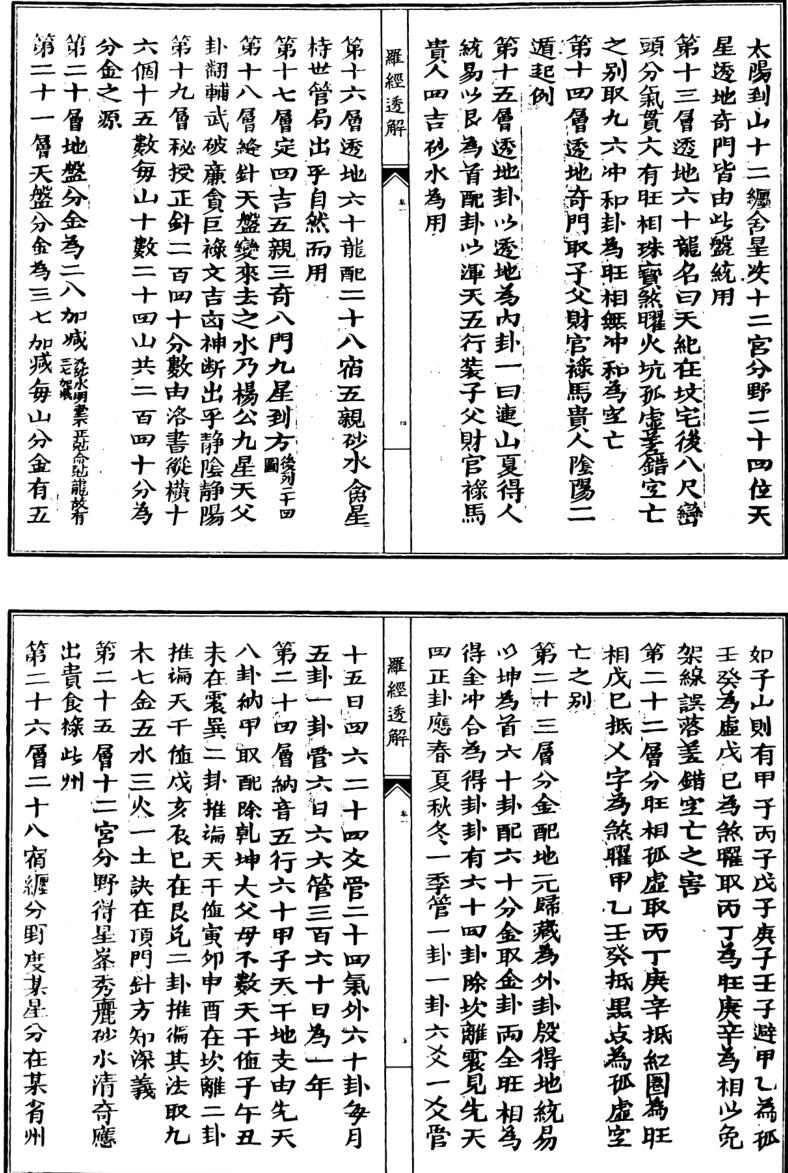 太陽到山十二纏舍星次十二宮分野二十四位天
星透地奇門皆由此盤統用
第十三層透地六十龍名曰天紀在坟宅後八尺巒
頭分氣貫穴有旺相珠寶煞曜火坑孤虛差錯空亡
之别取九六冲和卦為旺相無冲和為空亡
第十四層透地奇門取子父財官祿馬貴人陰陽二
遁起例
第十五層透地卦以透地為內卦一曰連山夏得人
統易以艮為首配卦以渾天五行裝子父財官祿馬
貴人四吉砂水為用
羅經透解
卷一
四
第十六層透地六十龍配二十八宿五親砂水禽星
持世管局出乎自然而用
第十七層定四吉五親三奇八門九星到方後刻二十四圖
第十八層縫針天盤變來去之水乃楊公九星天父
卦翻輔武破廉貪巨祿文吉凶神断出乎静陰静陽
第十九層秘授正針二百四十分數由洛書縱橫十
六個十五數每山十數二十四山共二百四十分為
分金之源
第二十層地盤分金為二八加减
第二十一層天盤分金為三七加减每山分金有五
如子山則有甲子丙子戊子庚子壬子避甲乙為孤
壬癸為虛戊己為煞曜取丙丁為旺庚辛為相以免
架線誤落差錯空亡之害
第二十二層分旺相孤虛取丙丁庚辛抵紅圈為旺
相戊己抵乂字為煞曜甲乙壬癸抵黑点為孤虛空
亡之别
第二十三層分金配地元歸藏為外卦殷得地統易
以坤為首六十卦配六十分金取金卦兩全旺相為
得金冲合為得卦卦有六十四卦除坎離震兌先天
四正卦應春夏秋冬一季管一卦一卦六爻一爻管
羅經透解
卷一
五
十五日四六二十四爻管二十四氣外六十卦每月
五卦一卦管六日六六管三百六十日為一年
第二十四層納音五行六十甲子天干地支由先天
八卦納甲取配除乾坤大父母不數天干値子午丑
未在震巽二卦推遍天干値寅卯申酉在坎離二卦
推遍天干值戌亥辰巳在艮兌二卦推徧其法取九
木七金五水三火一土訣在頂門針方知深義
第二十五層十二宮分野得星峯秀麗砂水清奇應
出貴食祿此州
第二十六層二十八宿纏分野度某星分在某省州